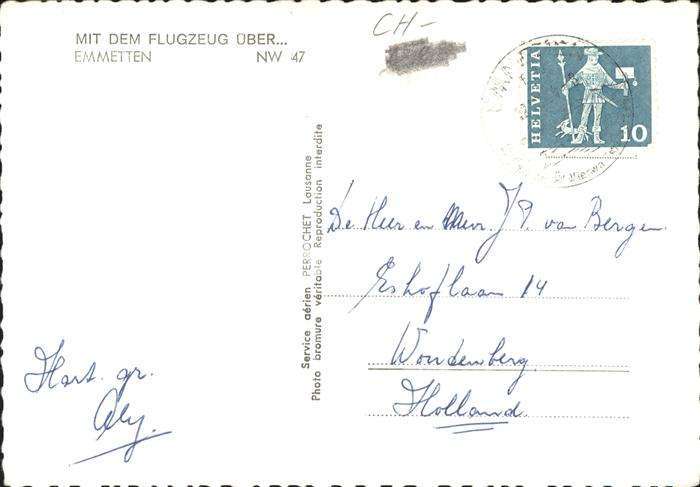 CH-
MIT DEM FLUGZEUG ÜBER...
EMMETTEN NW 47
HELVETIA
10
Service aérien PERROCHET Lausanne
Photo bromure véritable Reproduction interdite
De Heer en Mevr. J P. van Bergen
Eshoflaan 14
Woudenberg.
Holland.
Hart. gr.
Aly.